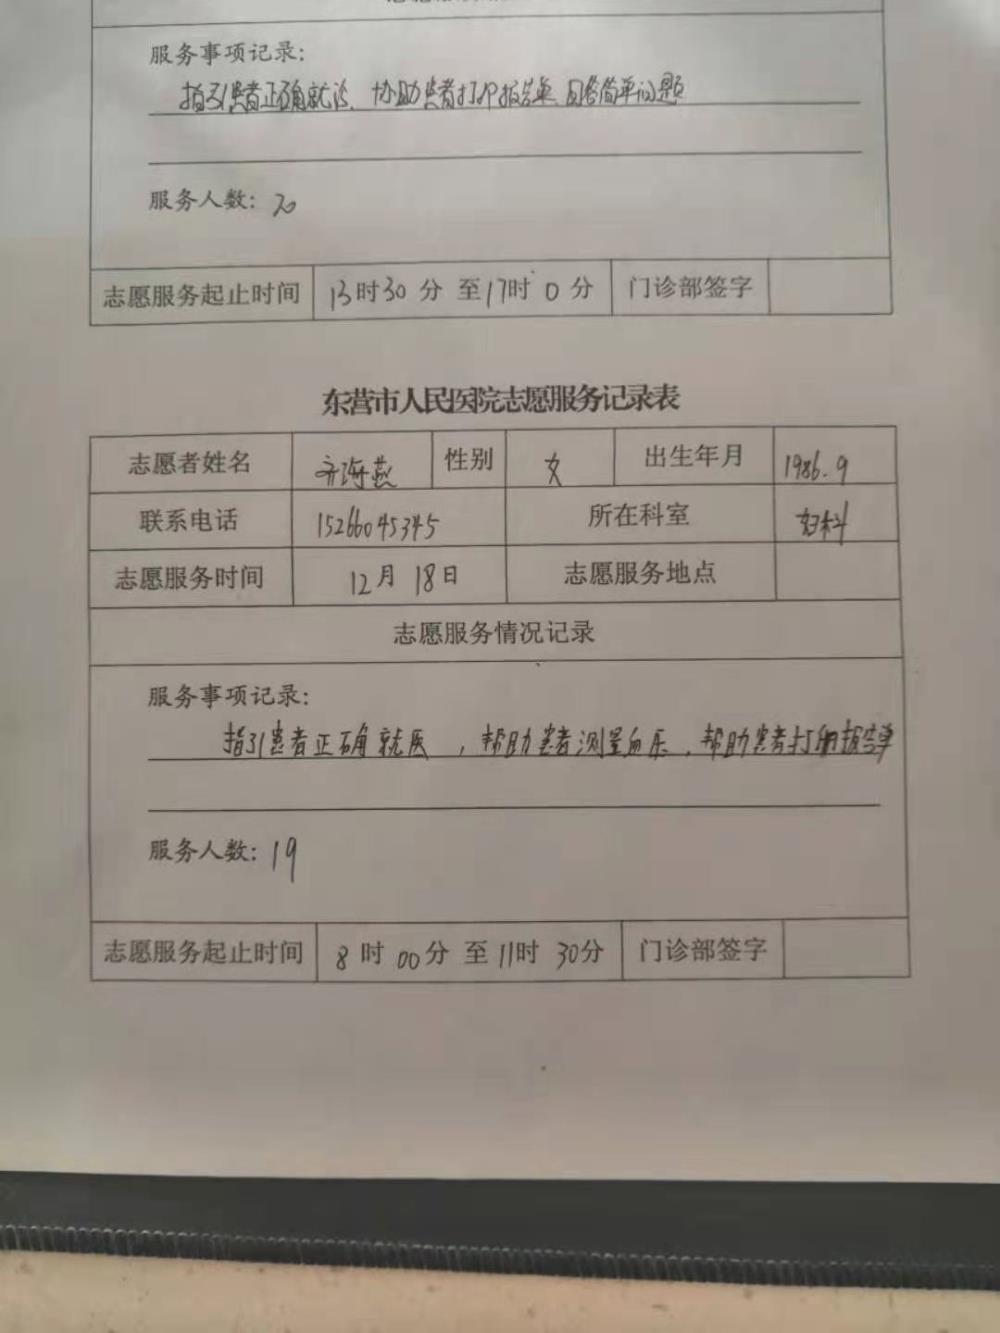 服务事项记录:
指引患者正确就诊、协助患者打印报告单 回答简单问题
服务人数: 20
志愿服务起止时间 13时30分 至17时 0 分 门诊部签字
东营市人民医院志愿服务记录表
志愿者姓名 齐海燕 性别 女 出生年月 1986.9
联系电话 15266045345 所在科室 妇科
志愿服务时间 12月 18日 志愿服务地点
志愿服务情况记录
服务事项记录:
指引患者正确就医,帮助患者测量血压,帮助患者打印报告单
服务人数: 19
志愿服务起止时间 8 时 00分 至 11时 30分 门诊部签字